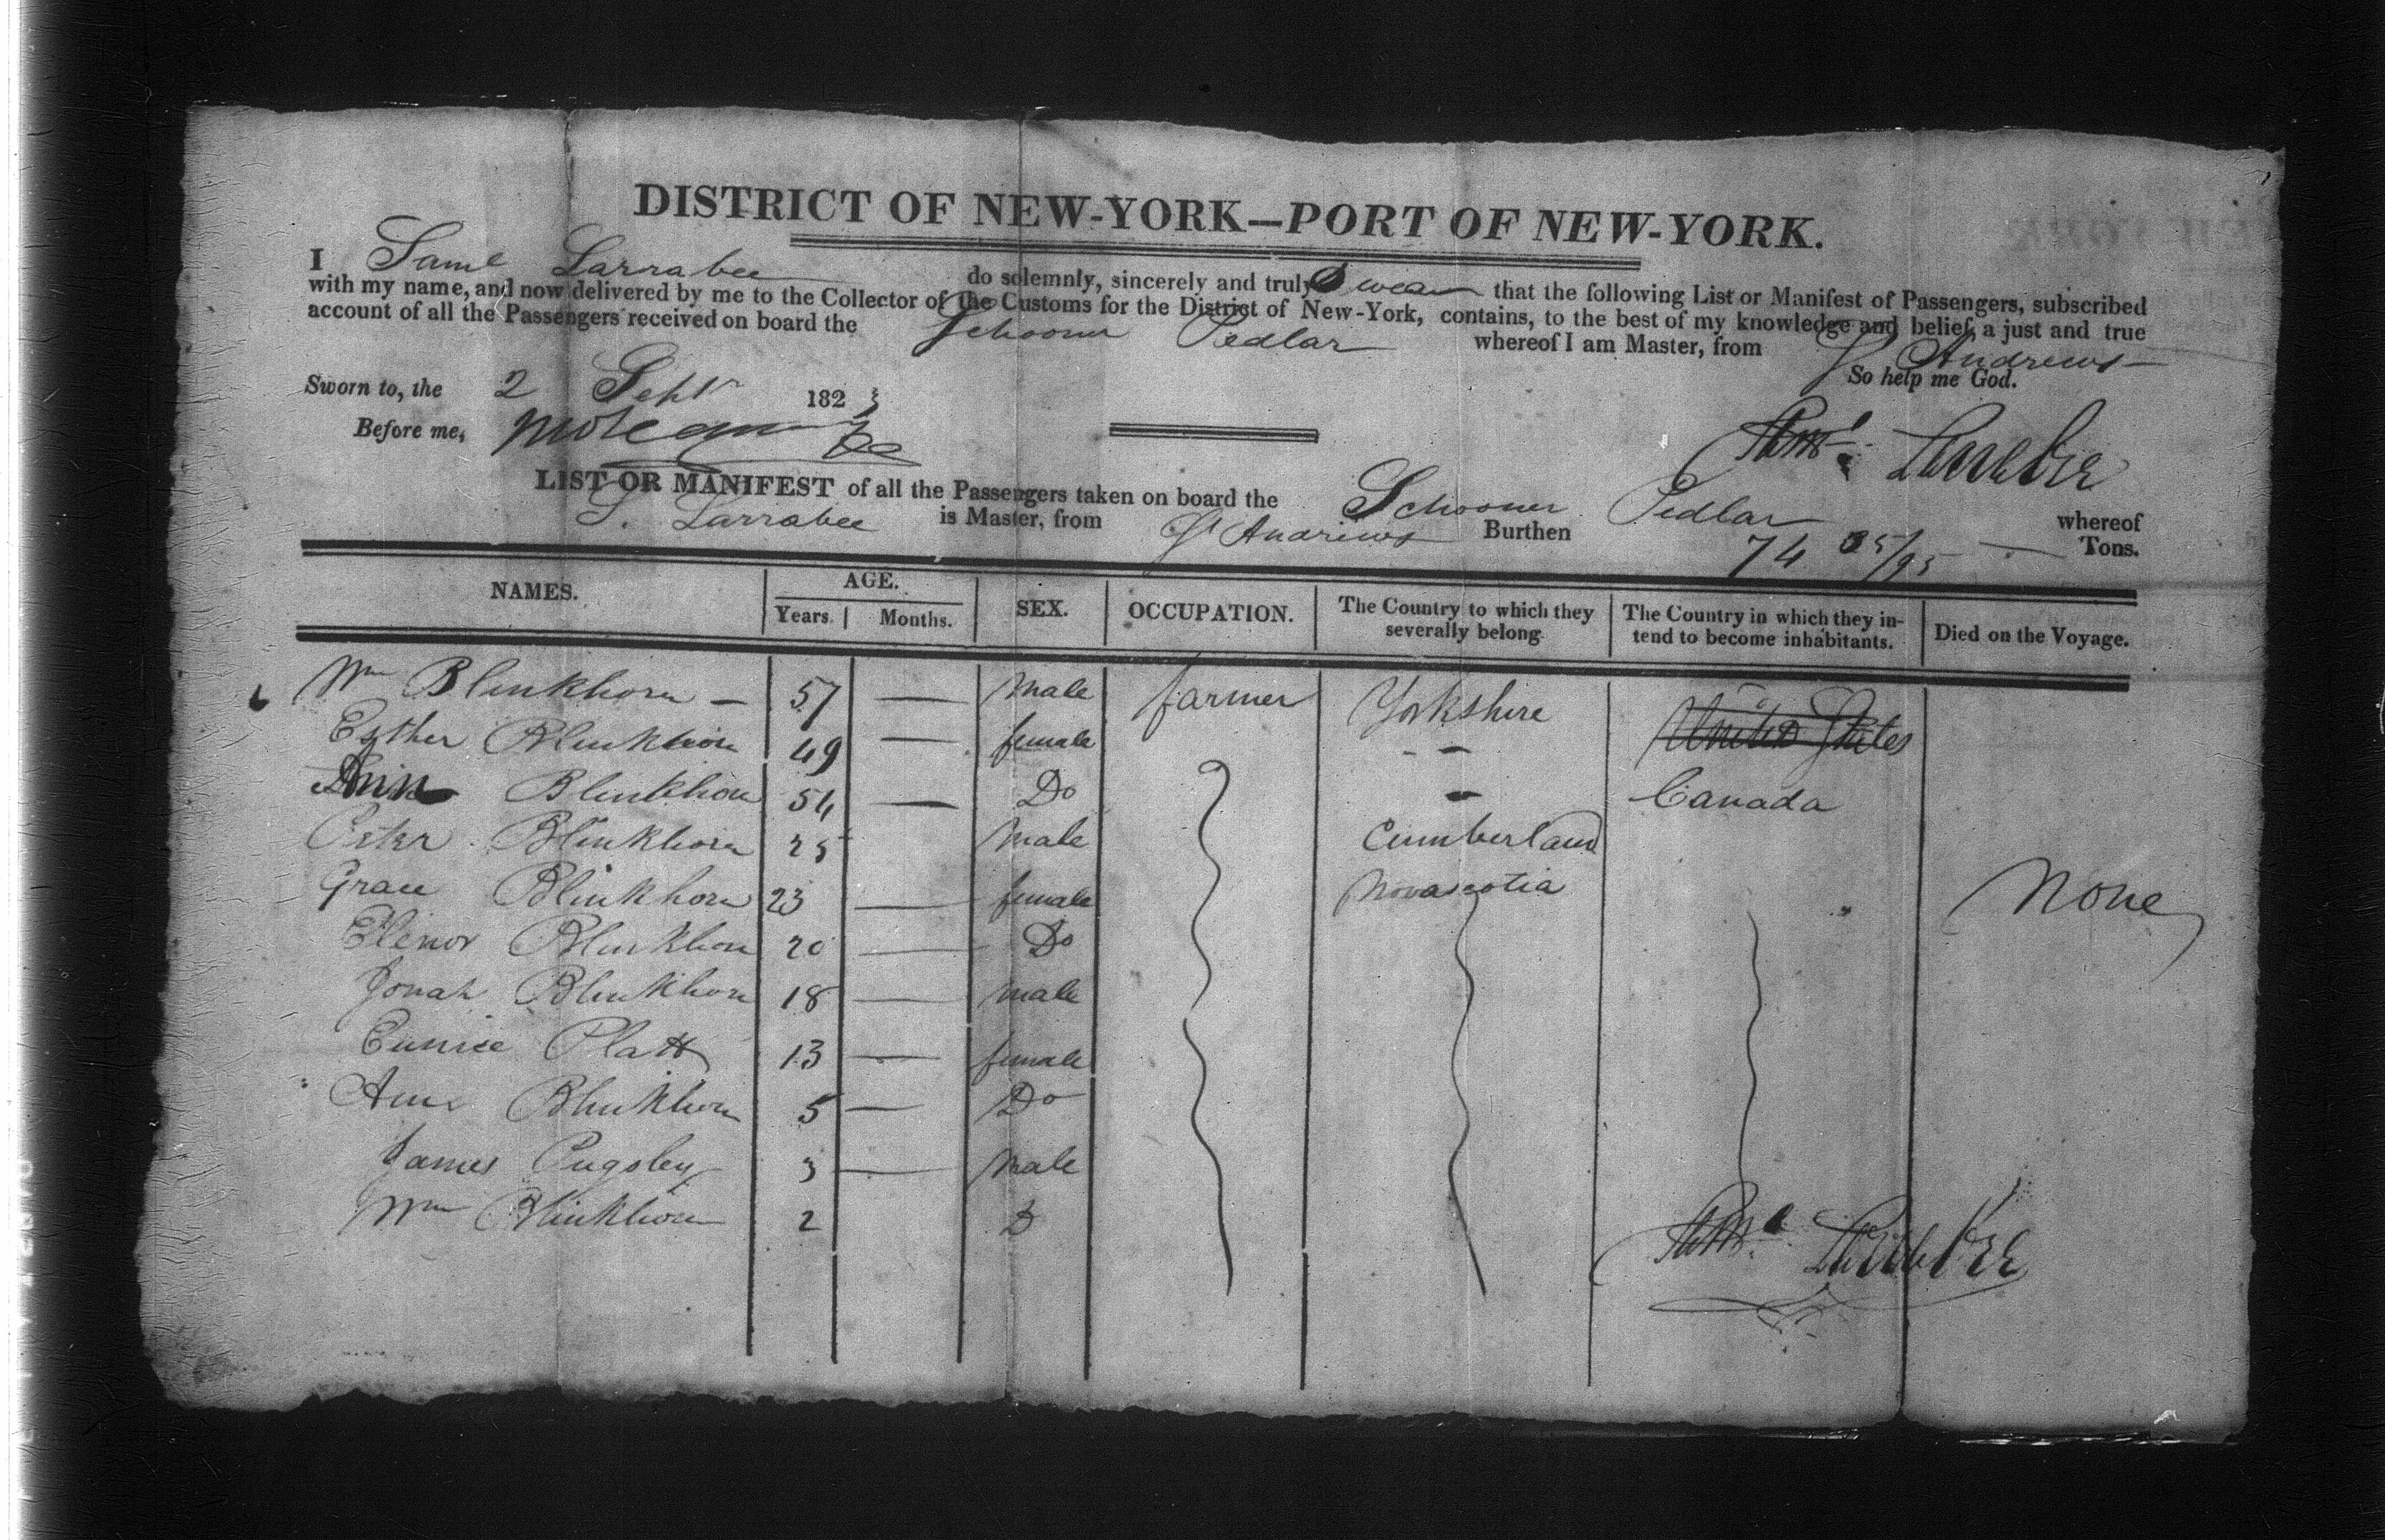 DISTRICT OF NEW-YORK—PORT OF NEW-YORK.
I Saml Larrabee do solemnly, sincerely and truly Swear that the following List or Manifest of Passengers, subscribed
with my name, and now delivered by me to the Collector of the Customs for the District of New-York, contains, to the best of my knowledge and belief, a just and true
account of all the Passengers received on board the Schooner Pedlar whereof I am Master, from St Andrews
So help me God.
Sworn to, the 2 Sept 1823
Before me,
Saml Larrabee
LIST OR MANIFEST of all the Passengers taken on board the Schooner Pedlar whereof
S. Larrabee is Master, from St Andrews Burthen 74 35/95 Tons.
NAMES. AGE. Years. Months. SEX. OCCUPATION. The Country to which they severally belong The Country in which they intend to become inhabitants. Died on the Voyage.
Wm Blinkhorn — 57 — Male farmer Yorkshire United States
Esther Blinkhorn 49 — female - -
Ann Blinkhorn 54 — Do - Canada
Peter Blinkhorn 25 Male Cumberland
Grace Blinkhorn 23 — female Novascotia None
Elenor Blinkhorn 20 — Do
Jonah Blinkhorn 18 — male
Eunice Platt 13 — female
Ann Blinkhorn 5 — Do
James Pugsley 3 — Male
Wm Blinkhorn 2 D
Saml Larrabee